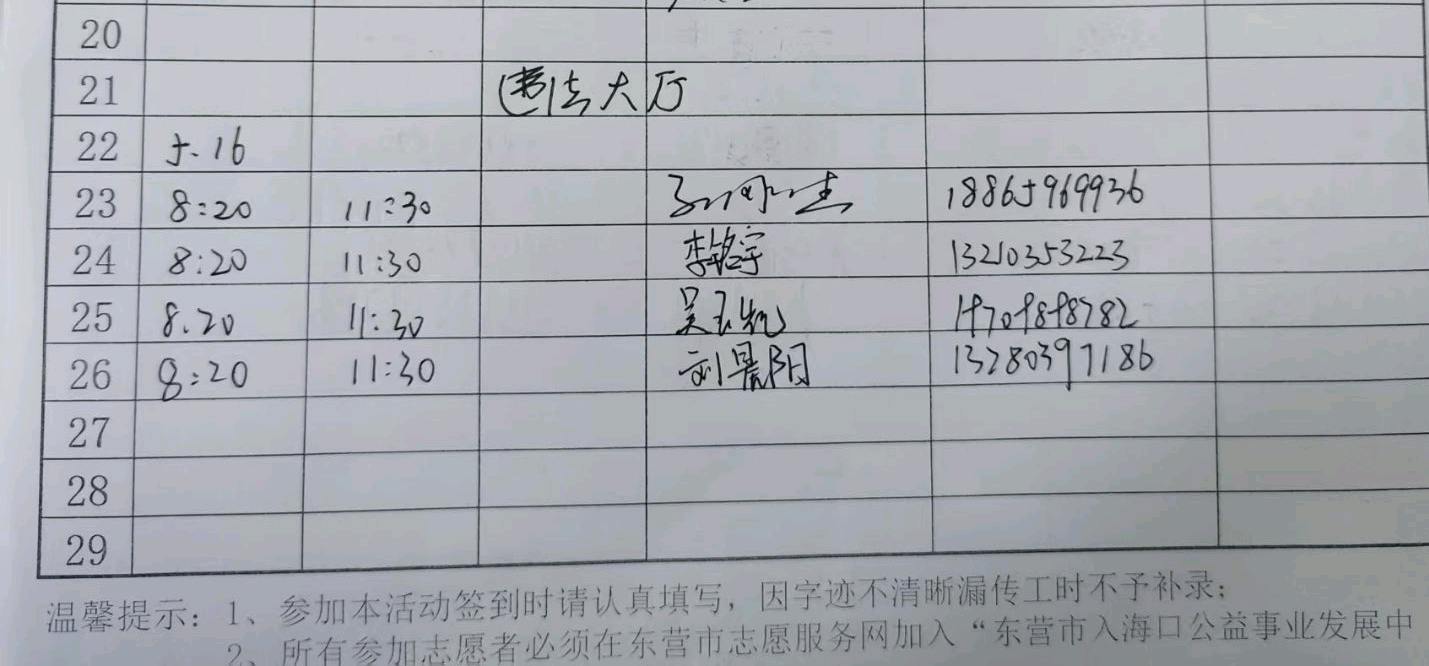 20
21 违法大厅
22 5.16
23 8:20 11:30 18865969936
24 8:20 11:30 李铭宇 13210353223
25 8.20 11:30 吴玉凯
26 8:20 11:30 刘景阳 13280397186
27
28
29
温馨提示：1、参加本活动签到时请认真填写，因字迹不清晰漏传工时不予补录；
2、所有参加志愿者必须在东营市志愿服务网加入“东营市入海口公益事业发展中